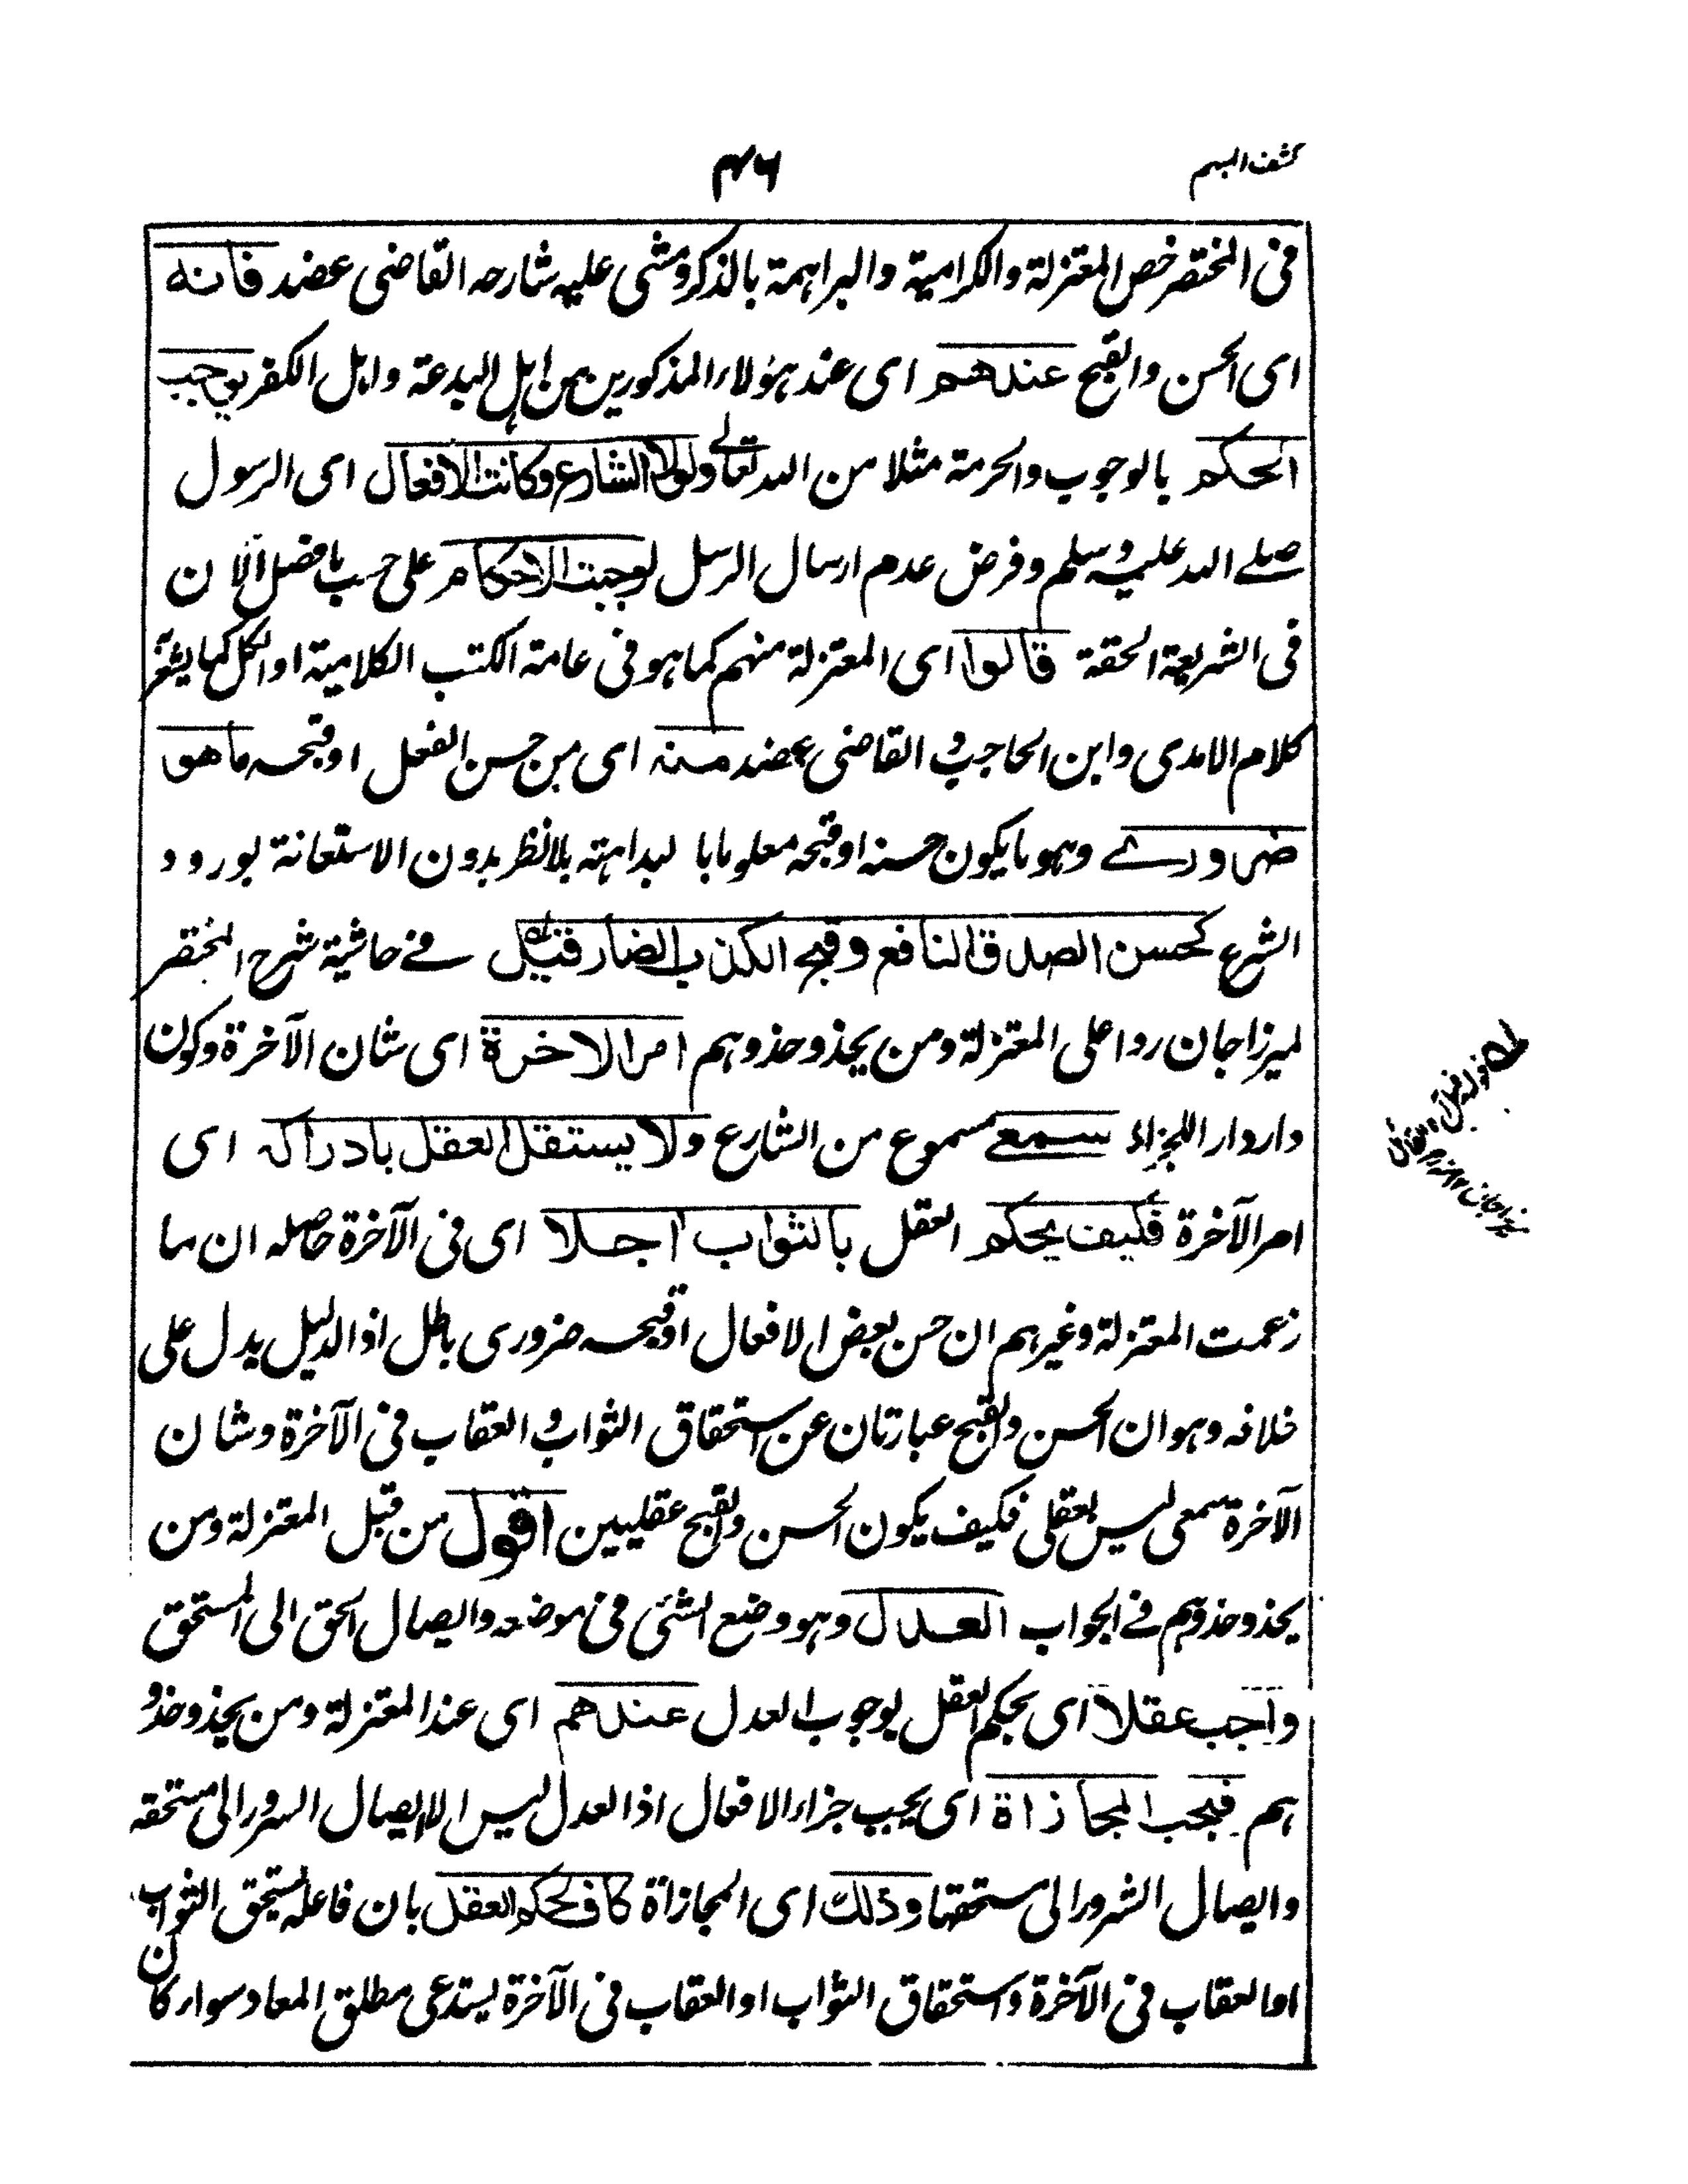 كشف المبهم
۴۶
فى المختصر خص المعتزلة والكرامية والبراهمة بالذكر ومشى عليه شارحه القاضى عضد فانه
اى الحسن والقبح عندهم اى عند هؤلاء المذكورين من اهل البدعة واهل الكفر يوجب
الحكم بالوجوب والحرمة مثلا من الله تعالى ولولا الشارع وكانت الافعال اى الرسول
صلى الله عليه وسلم وفرض عدم ارسال الرسل لوجبت الاحكام على حسب ما فصل الآن
فى الشريعة الحقة قالوا اى المعتزلة منهم كما هو فى عامة الكتب الكلامية او الكل كما يشعر
كلام الامدى وابن الحاجب و القاضى عضد منه اى من حسن الفعل او قبحه ما هو
ضرورى وهو ما يكون حسنه او قبحه معلوما با لبداهته بلا نظر بدون الاستعانة بورود
الشرع كحسن الصدق النافع وقبح الكذب الضار قيل فى حاشية شرح المختصر
لميرزاجان ردا على المعتزلة ومن يحذو حذوهم امر الاخرة اى شان الآخرة وكون
دار دار الجزاء سمعى مسموع من الشارع ولا يستقل العقل بادراكه اى
امر الآخرة فكيف يحكم العقل بالثواب آجلا اى فى الآخرة حاصله ان ما
زعمت المعتزلة وغيرهم ان حسن بعض الافعال او قبحه ضرورى باطل اذ الدليل يدل على
خلافه وهو ان الحسن والقبح عبارتان عن استحقاق الثواب و العقاب فى الآخرة وشان
الآخرة سمعى ليس بعقلى فكيف يكون الحسن والقبح عقليين اقول من قبل المعتزلة ومن
يحذو حذوهم فى الجواب العدل وهو وضع الشئ فى موضعه وايصال الحق الى المستحق
واجب عقلا اى بحكم العقل بوجوب العدل عندهم اى عند المعتزلة ومن يحذو حذو
هم فيجب المجازاة اى يجب جزاء الافعال اذ العدل ليس الا ايصال السرور الى مستحقه
وايصال الشرور الى مستحقها وذلك اى المجازاة كاف لحكم العقل بان فاعله يستحق الثواب
او العقاب فى الآخرة واستحقاق الثواب او العقاب فى الآخرة يستدعى مطلق المعاد سواء كان
قوله قيل